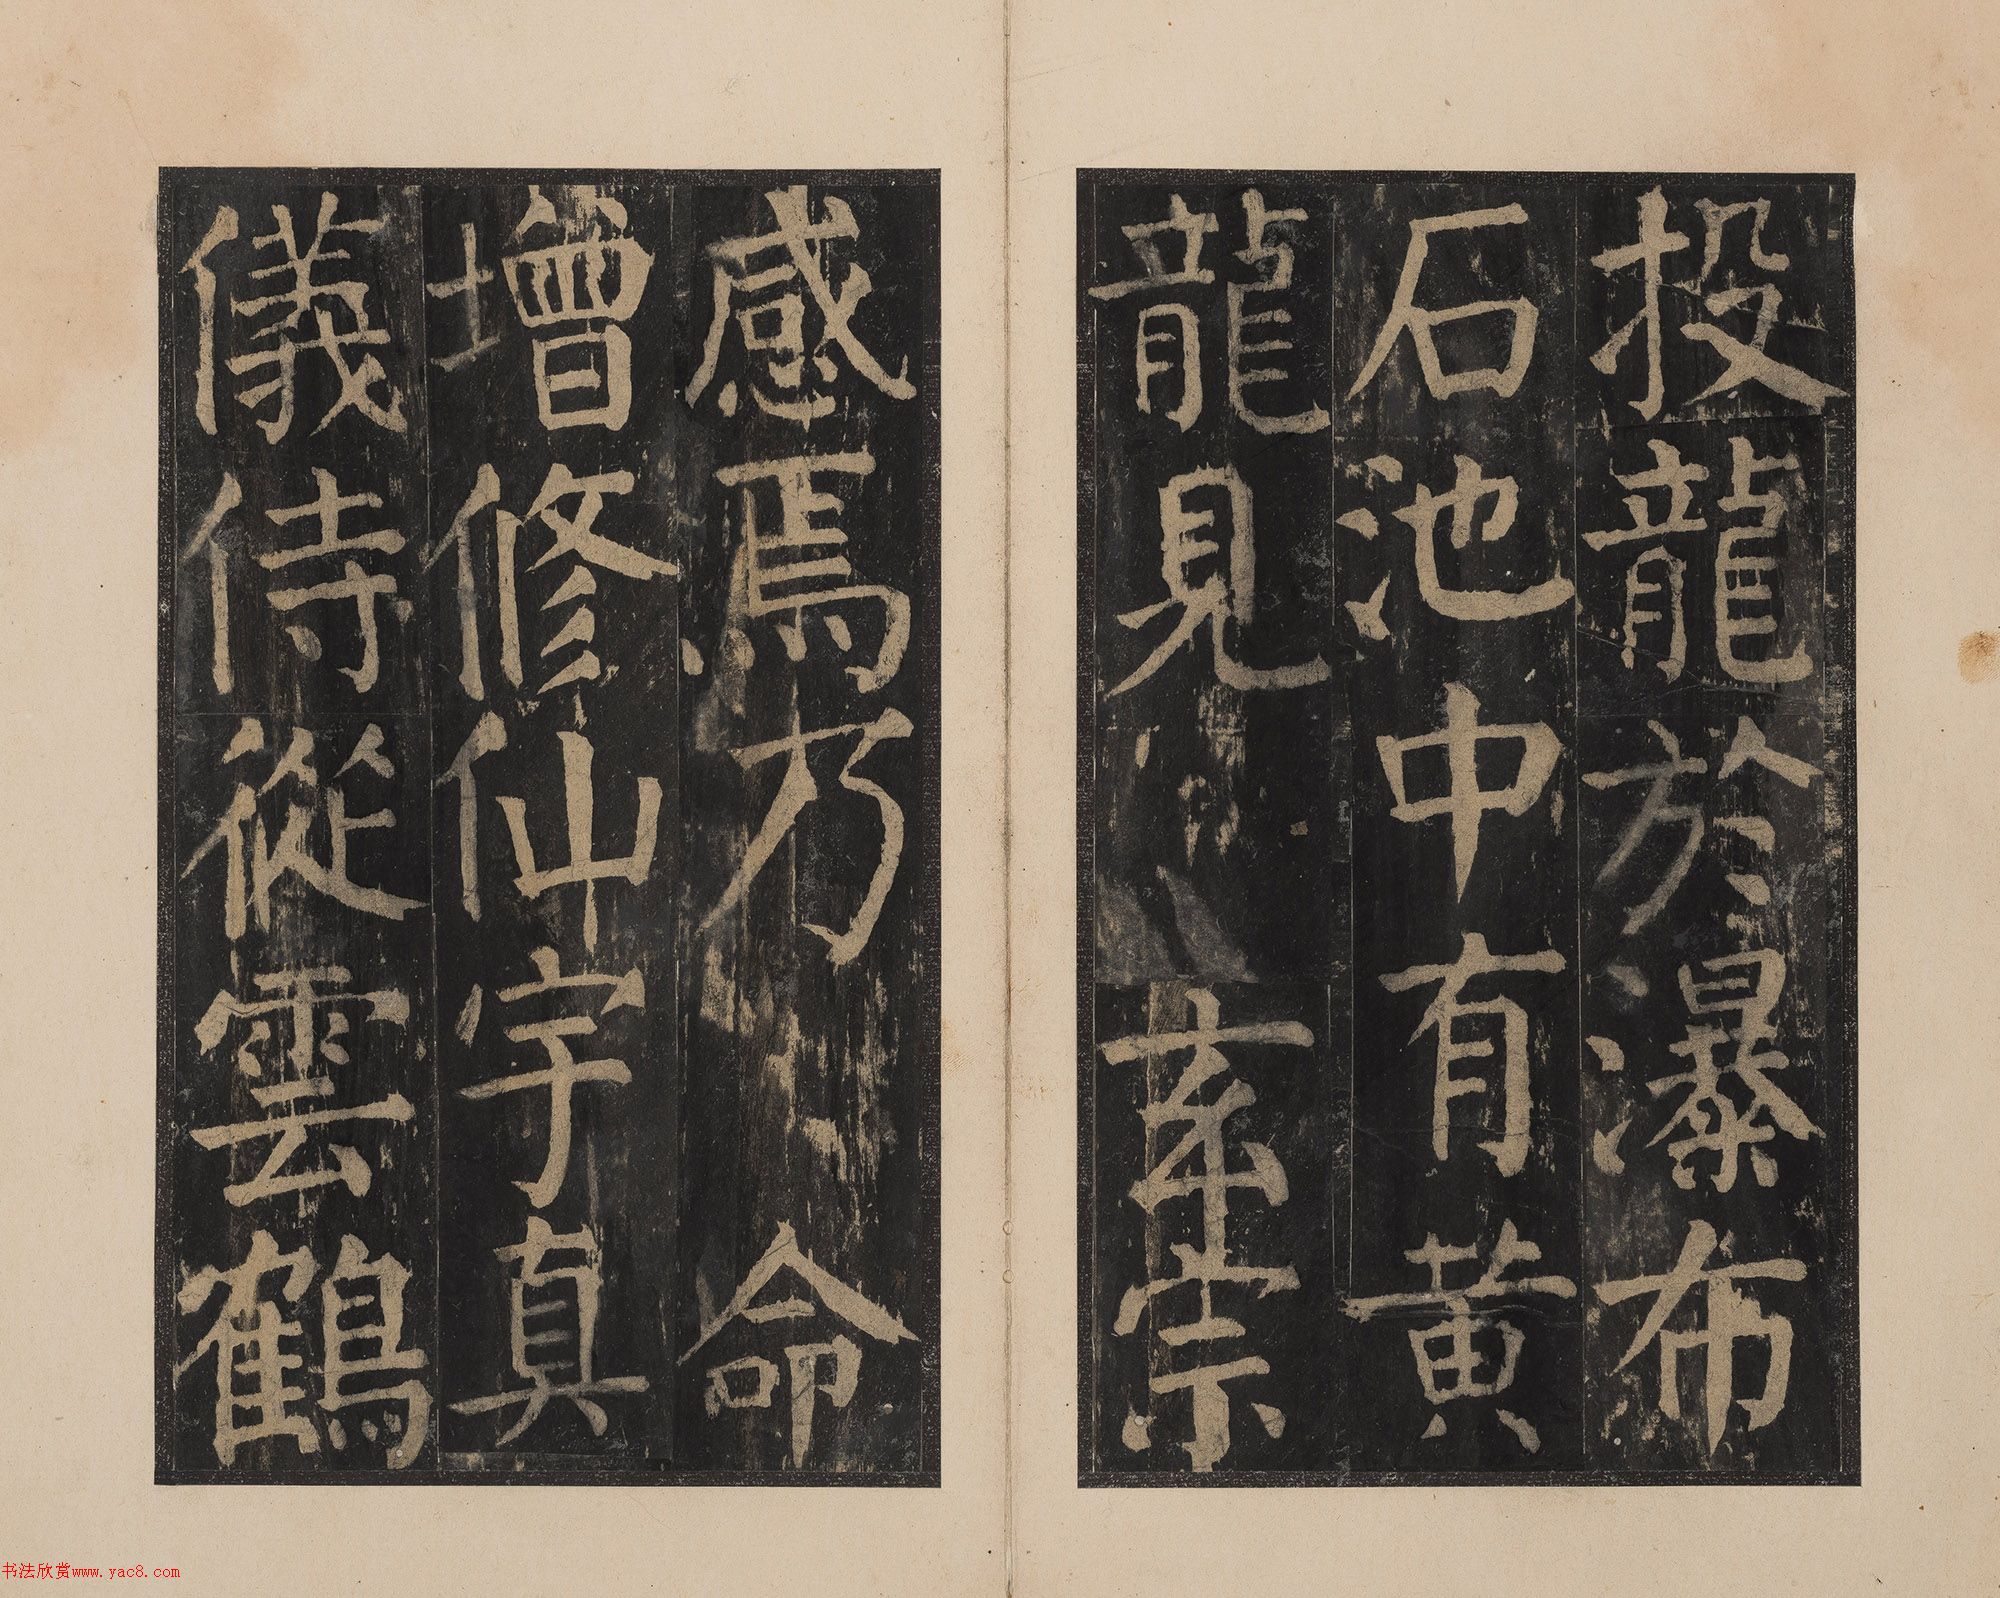 投龍於瀑布
石池中有黄
龍見玄宗
感焉乃命
增修仙宇真
儀侍從雲鶴
书法欣赏www.yac8.com